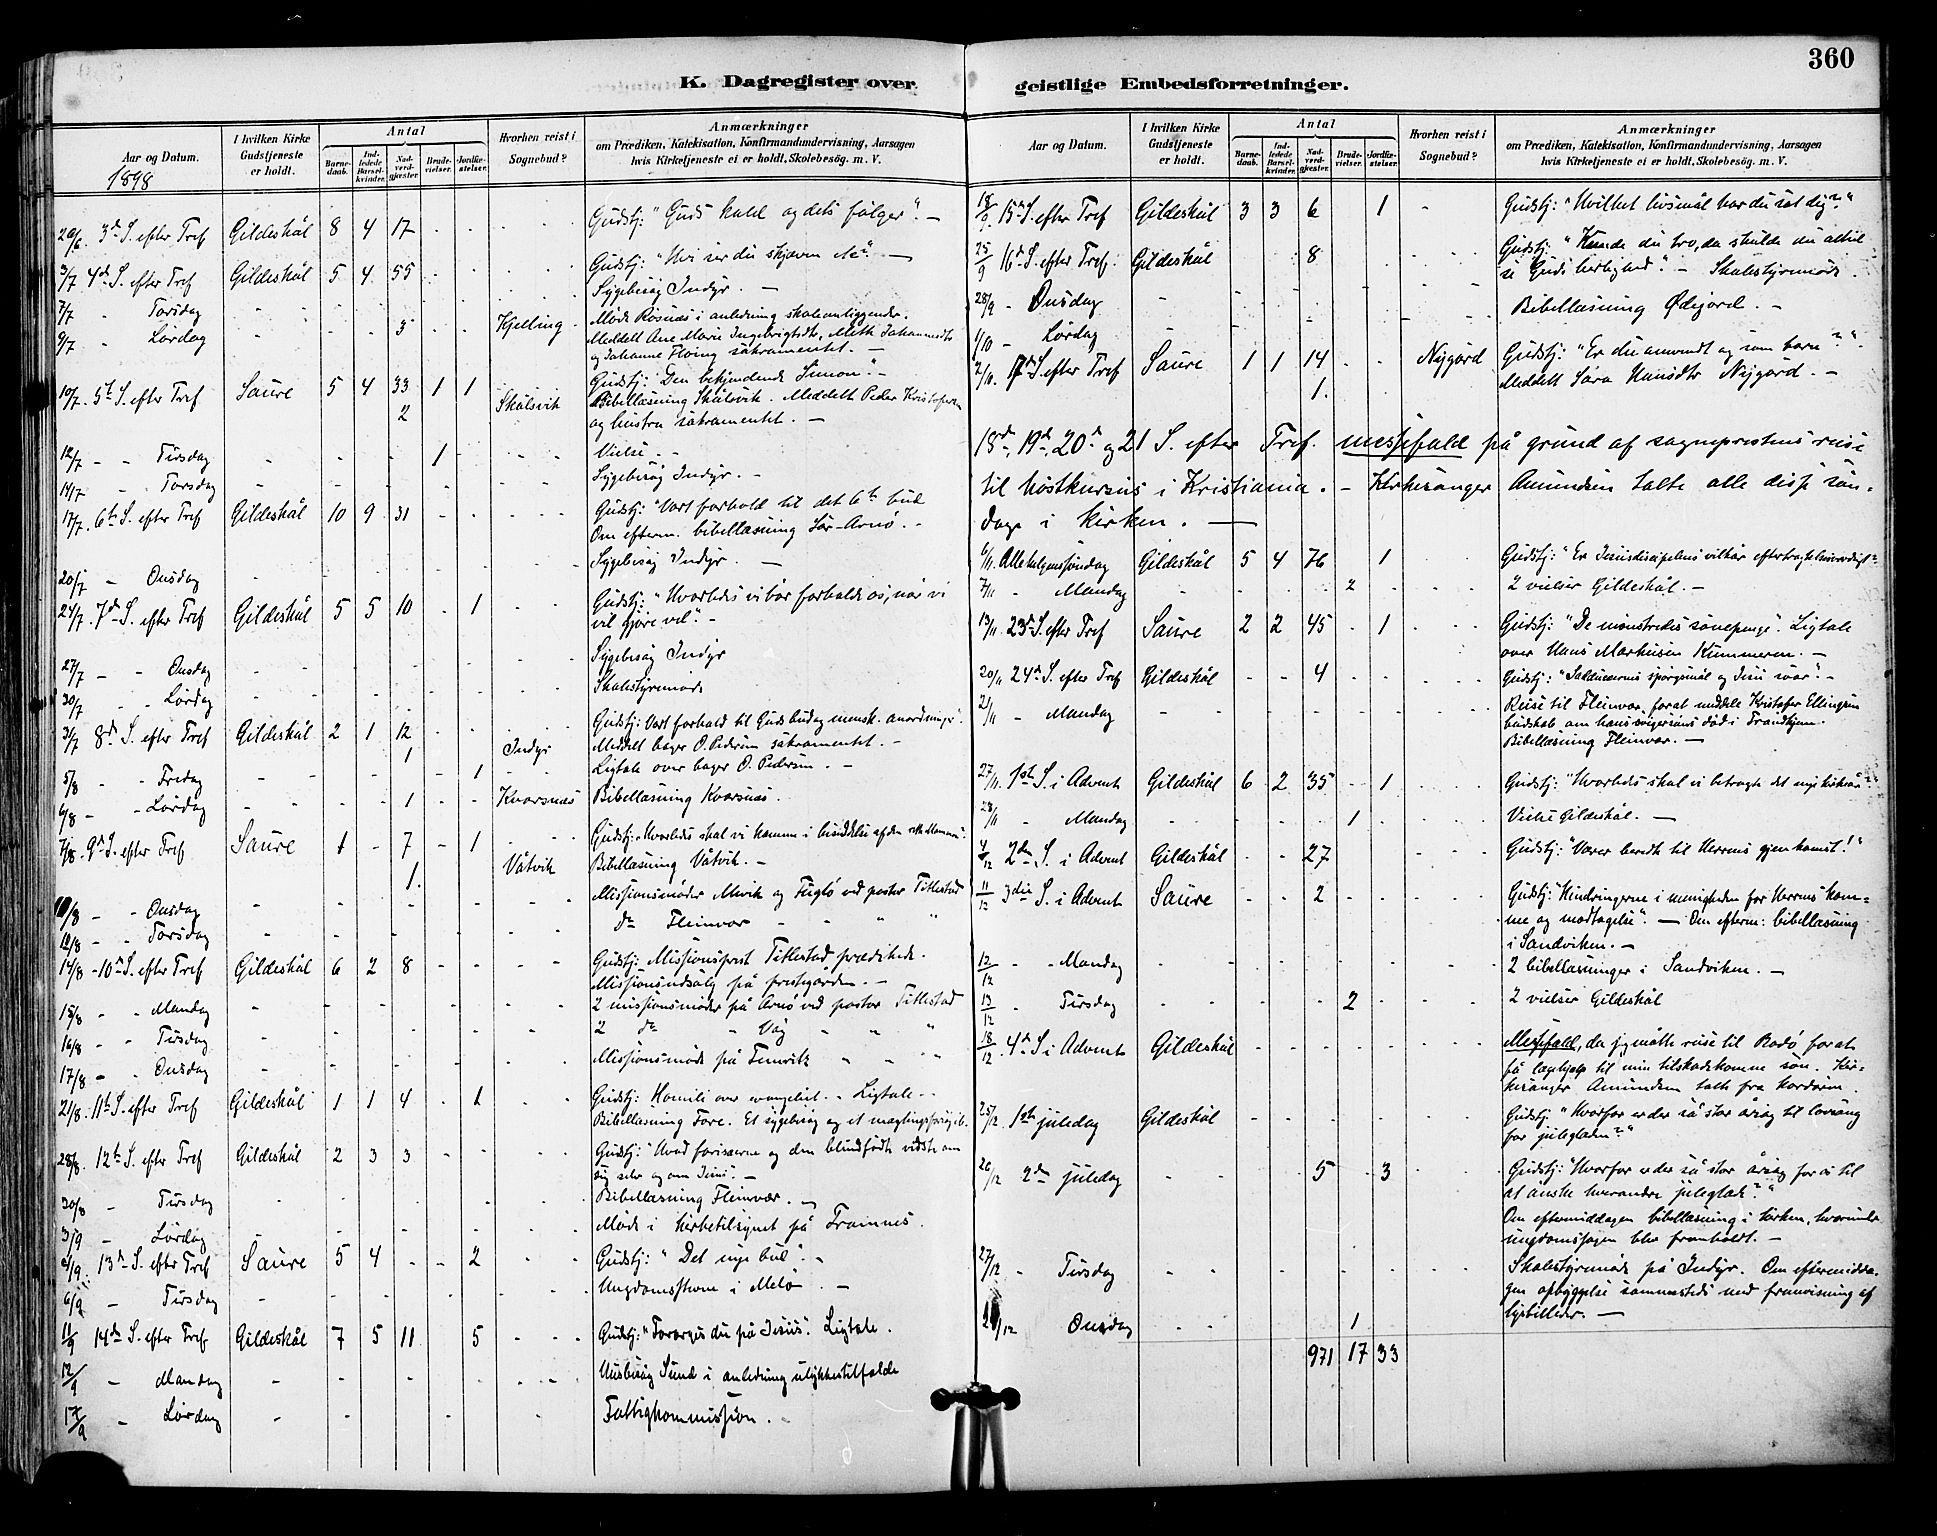 360
K. Dagregister over
geistlige Embedsforretninger.
Aar og Datum.
I hvilken Kirke Gudstjeneste er holdt.
Antal
Barnedaab.
Indledede Barselkvinder.
Nadverdgjæster.
Brudevielser.
Jordfæstelser.
Hvorhen reist i Sognebud?
Anmærkninger
om Prædiken, Katekisation, Konfirmandundervisning, Aarsagen
hvis Kirketjeneste ei er holdt, Skolebesög. m. V.
1898
26/6. 3d S. efter Tref Gildeskål 8 4 17 Gudstj: "Guds kald og dets følger". -
3/7 4de S. efter Tref Gildeskål 5 4 55 Gudstj: "Hvi ser du skjæven
Sygebesøg Indyr. -
7/7 Torsdag Møde Rösnes i anledning skoleanliggender.
9/7 Lørdag 3 Kjelling Meddelt Ane Marie Ingebrigtsdt, Meth Johannesdt
og Johanne Fløing sakramentet. -
10/7. 5te S. efter Tref Saure 5 4 33 1 1 Gudstj: "Den bekjendende Simon". -
2 Skålsvik Bibellæsning Skålsvik. Meddelt Peder Kristofersen
og hustru sakramentet. -
12/7 - - Tirsdag 1 Vielse. -
14/7 Torsdag Sygebesøg Indyr. -
17/7. 6te S. efter Tref Gildeskål 10 9 31 Gudstj: Vort forhold til det 6te bud
Om efterm. bibellæsning Sør-Arnø. -
20/7 - Onsdag Sygebesøg Indyr. -
24/7. 7de S. efter Tref Gildeskål 5 5 10 1 Gudstj: "Hvorledes vi bør forholde os, når vi
vil gjøre vel". -
27/7 - - Onsdag Sygebesøg Indyr
30/7 - - Lørdag Skolestyremøde
31/7 8de S. efter Tref Gildeskål 2 1 12 Gudstj: Vort forhold til Guds bud og mensk. anordninger.
1 Indyr Meddelt bager O. Pedersen sakramentet. -
5/8 - - Fredag 1 Ligtale over bager O. Pedersen. -
6/8 - - Lørdag 1 Kvarsnæs Bibellæsning Kvarsnæs.
7/8. 9de S. efter Tref Saure 1 - 7 - 1 Gudstj: "Hvorledes skal vi komme i besiddelse af den rette Mammon".
1. Våtvik Bibellæsning Våtvik. -
10/8 - - Onsdag Missionsmøder Mevik og Fuglø ved pastor Titlestad
12/8 - - Torsdag do Fleinvær " "
14/8 - 10de S. efter Tref Gildeskål 6 2 8 Gudstj: Missionsprest Titlestad prædikede.
Missionsudsalg på prestegården. -
15/8 - - Mandag 2 missionsmøder på Arnø ved pastor Titlestad
16/8 - - Tirsdag 2 do " Våg " "
17/8 - - Onsdag Missionsmøde på " "
21/8. 11te S. efter Tref Gildeskål 1 1 4 - 1 Gudstj: Homili over evangeliet. - Ligtale. -
Bibellæsning Fore. Et sygebesøg og et mæglingsforsøg ib.
28/8. 12te S. efter Tref Gildeskål 2 3 3 Gudstj: "Hvad fariseerne og den blindfødte vidste om
sig selv og om Jesus". -
30/8 - Tirsdag Bibellæsning Fleinvær. -
3/9 - Lørdag Møde i herbetilsynet på
4/9 13de S. efter Tref Saure 5 4 - - 2 Gudstj: "Det nye bud". -
6/9 - Tirsdag Ungdomsstevne i Melø. -
11/9 14de S. efter Tref Gildeskål 7 5 11 5 Gudstj: "Forarges du på Jesus". Ligtale.
12/9 - Mandag Husbesøg Sund i anledning ulykkestilfælde
17/9 - Lørdag Fattigkommission. -
Aar og Datum.
I hvilken Kirke Gudstjeneste er holdt.
Antal
Barnedaab.
Indledede Barselkvinder.
Nadverdgjæster.
Brudevielser.
Jordfæstelser.
Hvorhen reist i Sognebud?
Anmærkninger
om Prædiken, Katekisation, Konfirmandundervisning, Aarsagen
hvis Kirketjeneste ei er holdt, Skolebesög. m. V.
18/9 15de S. efter Tref Gildeskål 3 3 6 1 Gudstj: "Hvilket livsmål har du sat dig?"
25/9 16de S. efter Tref. Gildeskål 8 Gudstj: "Kunde du tro, da skulde du altid
se Guds herlighed". - Skolestyremøde.
28/9 - Onsdag Bibellæsning Ødejord. -
1/10 - Lørdag
2/10. 17de S. efter Tref Saure 1 1 14 Nygård Gudstj: "Er du omvendt og som barn?".
1. Meddelt Sara Hansdtr Nygård. -
18de, 19de, 20de og 21 S. efter Tref. messefald på grund af sogneprestens reise
til høstkursus i Kristiania. - Kirkesanger Amundsen talte alle disse søn-
dage i kirken. -
6/11. Allehelgenssøndag Gildeskål 5 4 76 1 Gudstj: "Er Jesusdisciplens vilkår eftertragtelsesværdigt?
7/11 - Mandag 2 2 vielser Gildeskål. -
13/11. 23de S. efter Tref Saure 2 2 45 - 1 Gudstj: "De mønstredes sonepenge". Ligtale
over Hans Markusen Kummeren. -
20/11 24de S. efter Tref Gildeskål - - 4 Gudstj: "Sadducæernes spørgsmål og Jesu svar". -
21/11 - Mandag Reise til Fleinvær, forat meddele Kristofer Ellingsen
budskab om hans svigersøns død i Trondhjem.
Bibellæsning Fleinvær. -
27/11. 1ste S. i Advent Gildeskål 6 2 35 - 1 Gudstj: "Hvorledes skal vi betragte det nye kirkeår?"
28/11 - Mandag 1 Vielse Gildeskål. -
4/12 2den S. i Advent Gildeskål - - 27 Gudstj: "Vær beredt til Herrens gjenkomst!"
11/12 3die S. i Advent Saure 2 Gudstj: "Hindringerne i menigheden for Herrens kom-
me og modtagelse". - Om efterm: bibellæsning
i Sandviken. -
12/12 - - Mandag 2 bibellæsninger i Sandviken. -
13/12 - Tirsdag 2 2 vielser Gildeskål
18/12. 4de S i Advent Gildeskål Messefald, da jeg måtte reise til Bodø forat
få lægehjælp til min tilskadekomne søn. Kir-
kesanger Amundsen talte fra kordøren.
25/12. 1ste juledag Gildeskål Gudstj: "Hvorfor er der så stor årsag til lovsang
for juleglæden?"
26/12 2den juledag 5 3 Gudstj: "Hvorfor er der så stor årsag for os til
at ønske hverandre juleglæde?"
Om eftermiddagen bibellæsning i kirken, hvorunder
ungdomssagen blev fremholdt. -
27/12 - Tirsdag Skolestyremøde på Indyr. Om eftermidda-
gen opbyggelse sammesteds med fremvisning af
lysbilleder. -
Onsdag 1
971 17 33